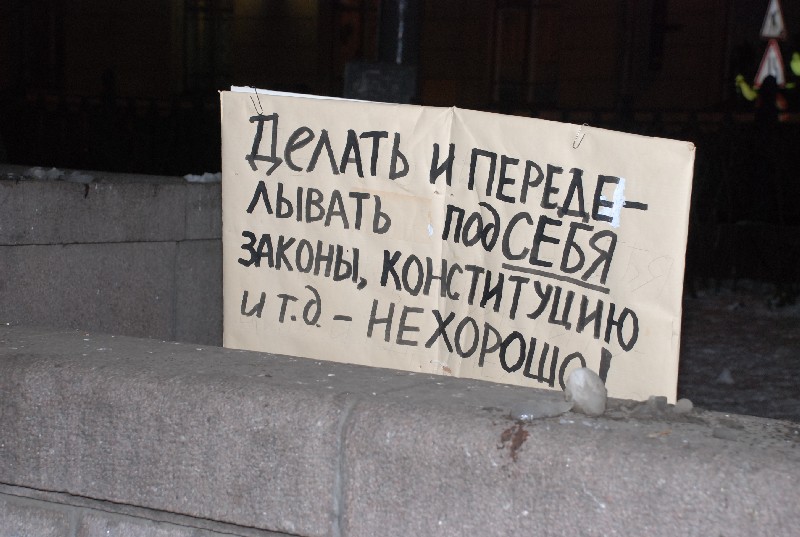 Делать и ПЕРЕДЕ-
ЛЫВАТЬ под СЕБЯ
ЗАКОНЫ, КОНСТИТУЦИЮ
и т.д - НЕ ХОРОШО!